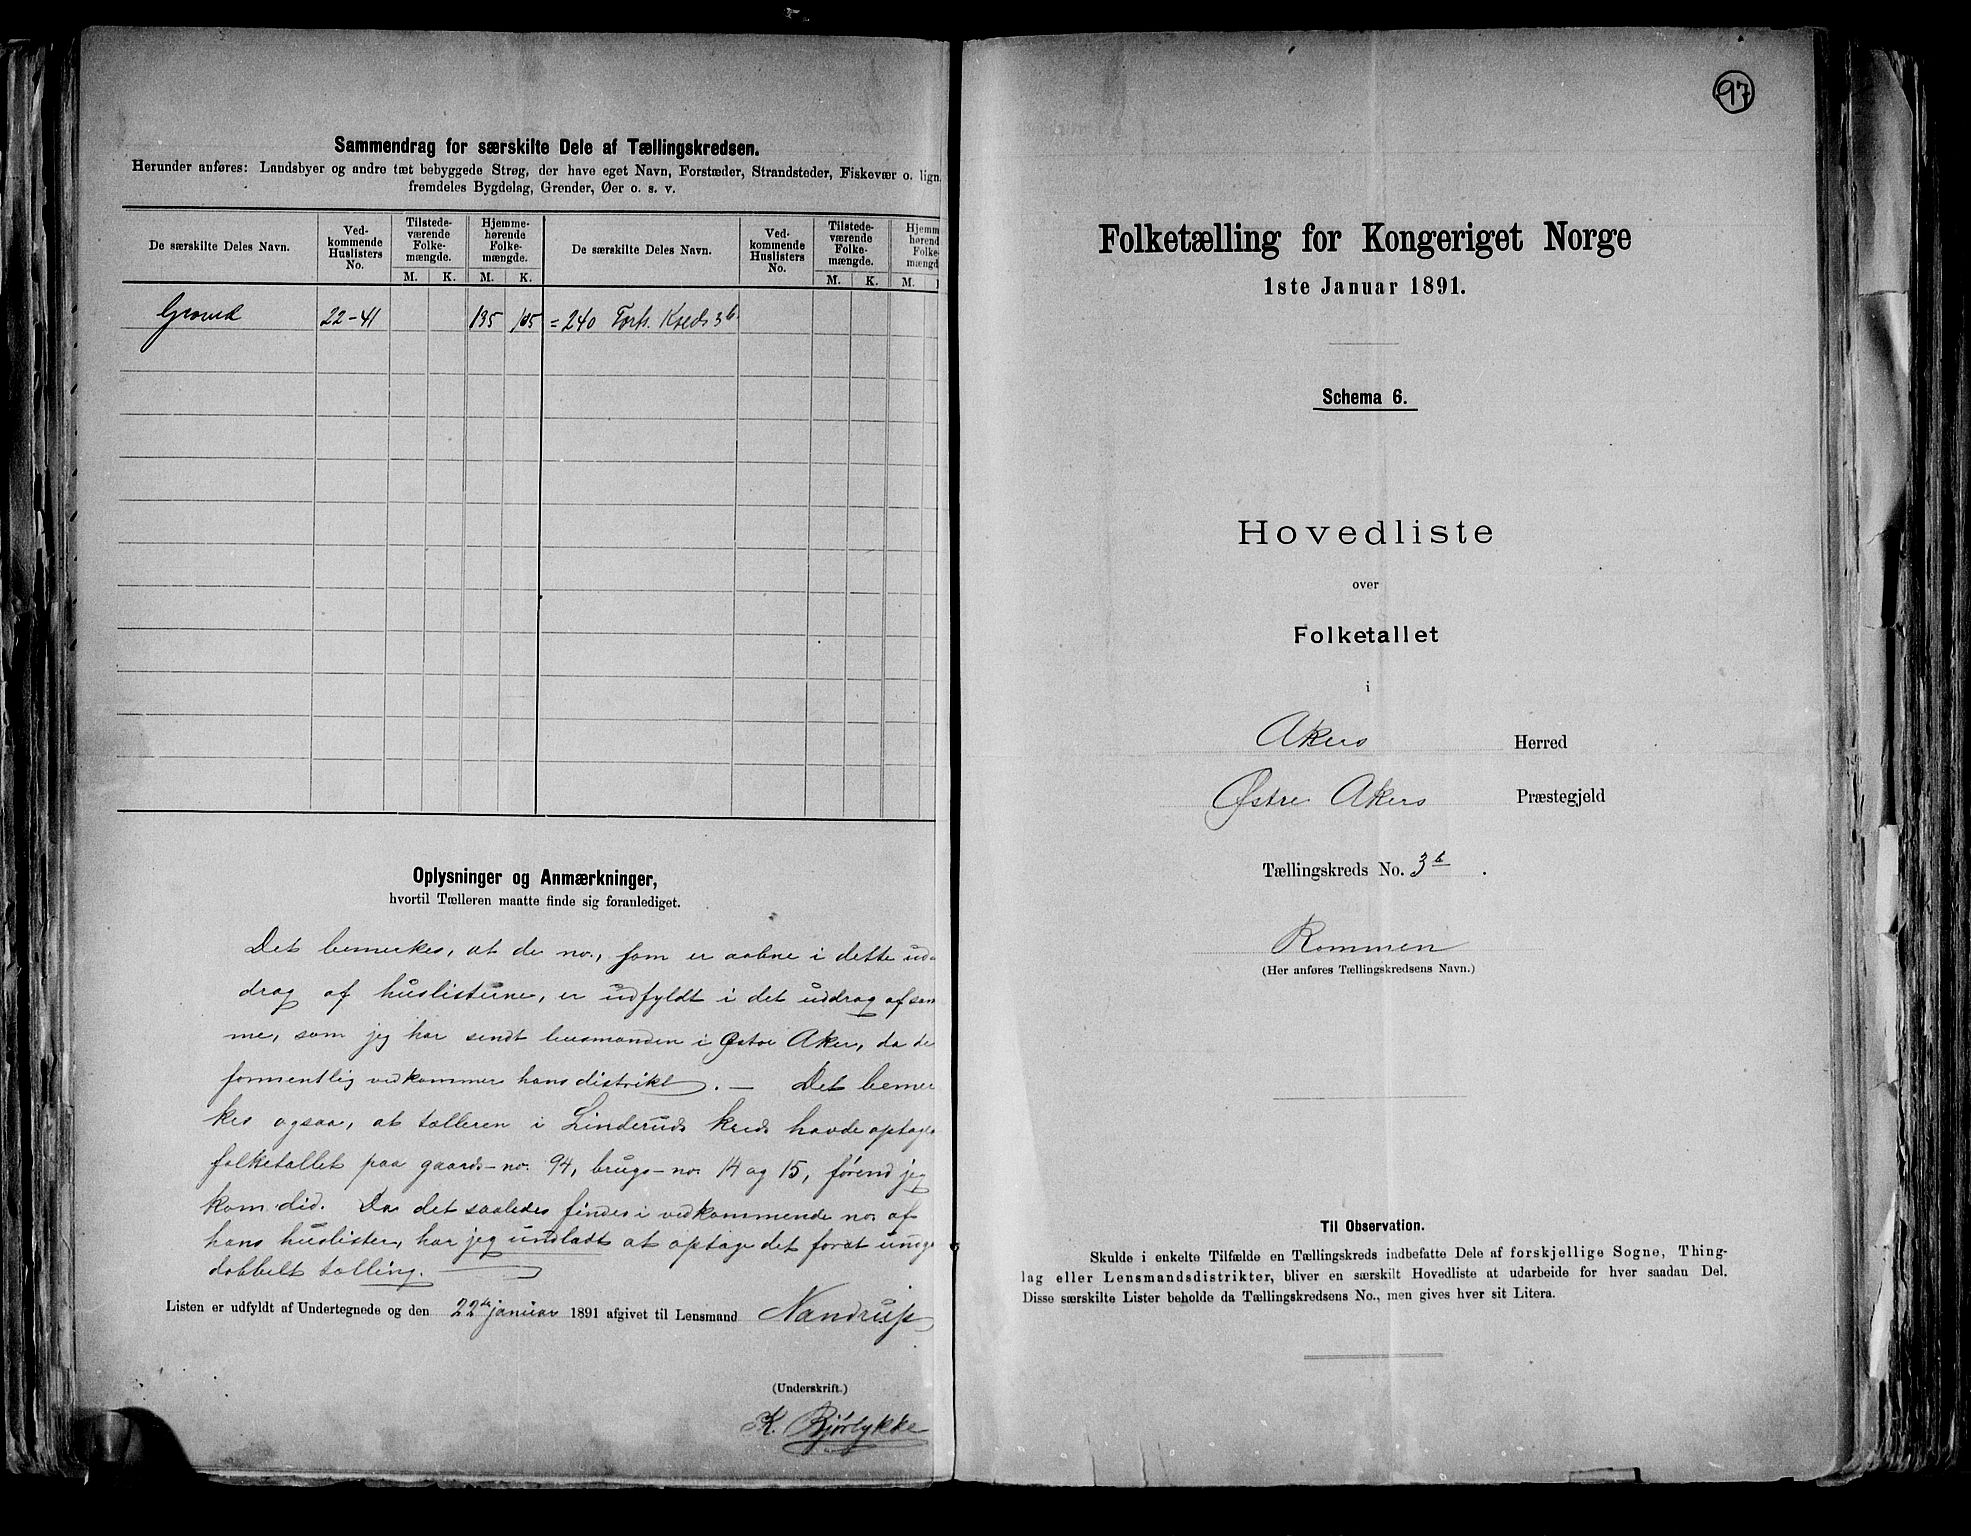 Sammendrag for særskilte Dele af Tællingskredsen.
Herunder anføres: Landsbyer og andre tæt bebyggede Strøg, der have eget Navn, Forstæder, Strandsteder, Fiskevær o. lign.
fremdeles Bygdelag, Grender, Øer o. s. v.
De særskilte Deles Navn. Ved-kommende Huslisters No. Tilstede-værende Folke-mængde. Hjemme-hørende Folke-mængde. De særskilte Deles Navn. Ved-kommende Huslisters No. Tilstede-værende Folke-mængde. Hjemm hørend Folke- mængd
M. K. M. K. M. K. M.
Grorud 22-41 135 105 = 240 Forts. Kreds 3b
Oplysninger og Anmærkninger,
hvortil Tælleren maatte finde sig foranlediget.
Det bemerkes, at de no., som er aabne i dette ud-
drag af huslisterne, er udfyldt i det uddrag af sam
me, som jeg har sendt lensmanden i Østre Aker, da de
formentlig vedkommer hans distrikt. — Det bemer
kes ogsaa, at tælleren i Linderuds kreds havde optage
folketallet paa gaards-no. 94, brugs-no. 14 og 15, førend jeg
kom did. Da det saaledes findes i vedkommende no. af
hans huslister, har jeg undladt at optage det forat undga
dobbelt tælling.
Listen er udfyldt af Undertegnede og den 22de januar 1891 afgivet til Lensmand Nandrup
(Underskrift.)
K. Bjørlykke
97
Folketælling for Kongeriget Norge
1ste Januar 1891.
Schema 6.
Hovedliste
over
Folketallet
i
Akers Herred
Østre Akers Præstegjeld
Tællingskreds No. 3b.
Rommen
(Her anføres Tællingskredsens Navn.)
Til Observation.
Skulde i enkelte Tilfælde en Tællingskreds indbefatte Dele af forskjellige Sogne, Thing-
lag eller Lensmandsdistrikter, bliver en særskilt Hovedliste at udarbeide for hver saadan Del.
Disse særskilte Lister beholde da Tællingskredsens No., men gives hver sit Litera.